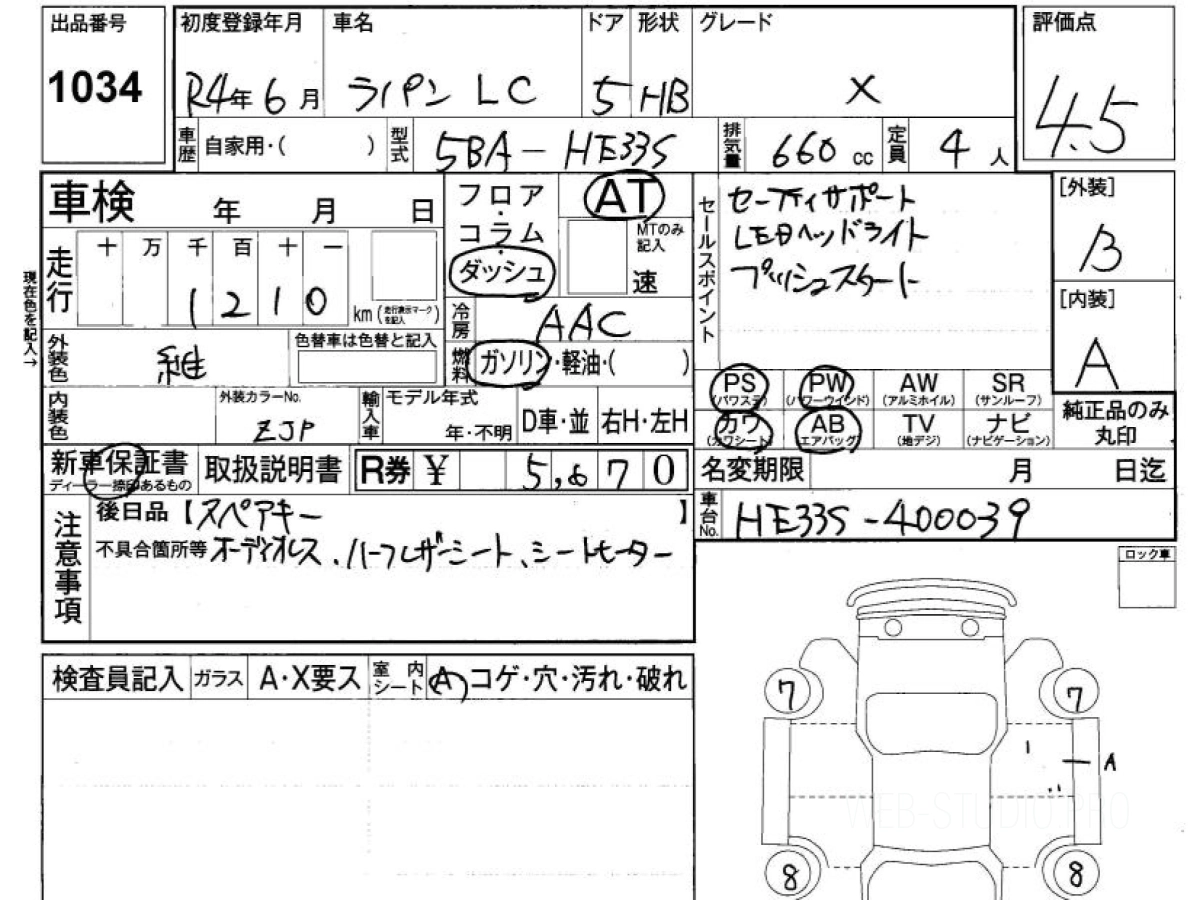 出品番号 1034
初度登録年月 R4年6月
車名 ラパン LC
ドア 5
形状 HB
グレード X
評価点 4.5
車歴 自家用・( )
型式 5BA-HE33S
排気量 660cc
定員 4人
車検 年 月 日
現在色を記入→
走行 十 万 千 百 十 一
1210 km(走行表示マークを記入)
外装色 紺
色替車は色替と記入
内装色
外装カラーNo. ZJP
輸入車 モデル年式 年・不明
D車・並 右H・左H
フロア・コラム・ダッシュ
AT
MTのみ記入 速
冷房 AAC
燃料 ガソリン・軽油・( )
セールスポイント
セーフティサポート
LEDヘッドライト
プッシュスタート
[外装] B
[内装] A
PS(パワステ) PW(パワーウインド) AW(アルミホイル) SR(サンルーフ)
カワ(カワシート) AB(エアバッグ) TV(地デジ) ナビ(ナビゲーション)
純正品のみ丸印
新車保証書 ディーラー捺印あるもの
取扱説明書
R券 ¥ 5,670
名変期限 月 日迄
車台No. HE33S-400039
注意事項
後日品【スペアキー 】
不具合箇所等 オーディオレス、ハーフレザーシート、シートヒーター
ロック車
検査員記入 ガラス A・X要ス 室内シート A コゲ・穴・汚れ・破れ
7 7
A
WEB-STUDIO.PRO
8 8